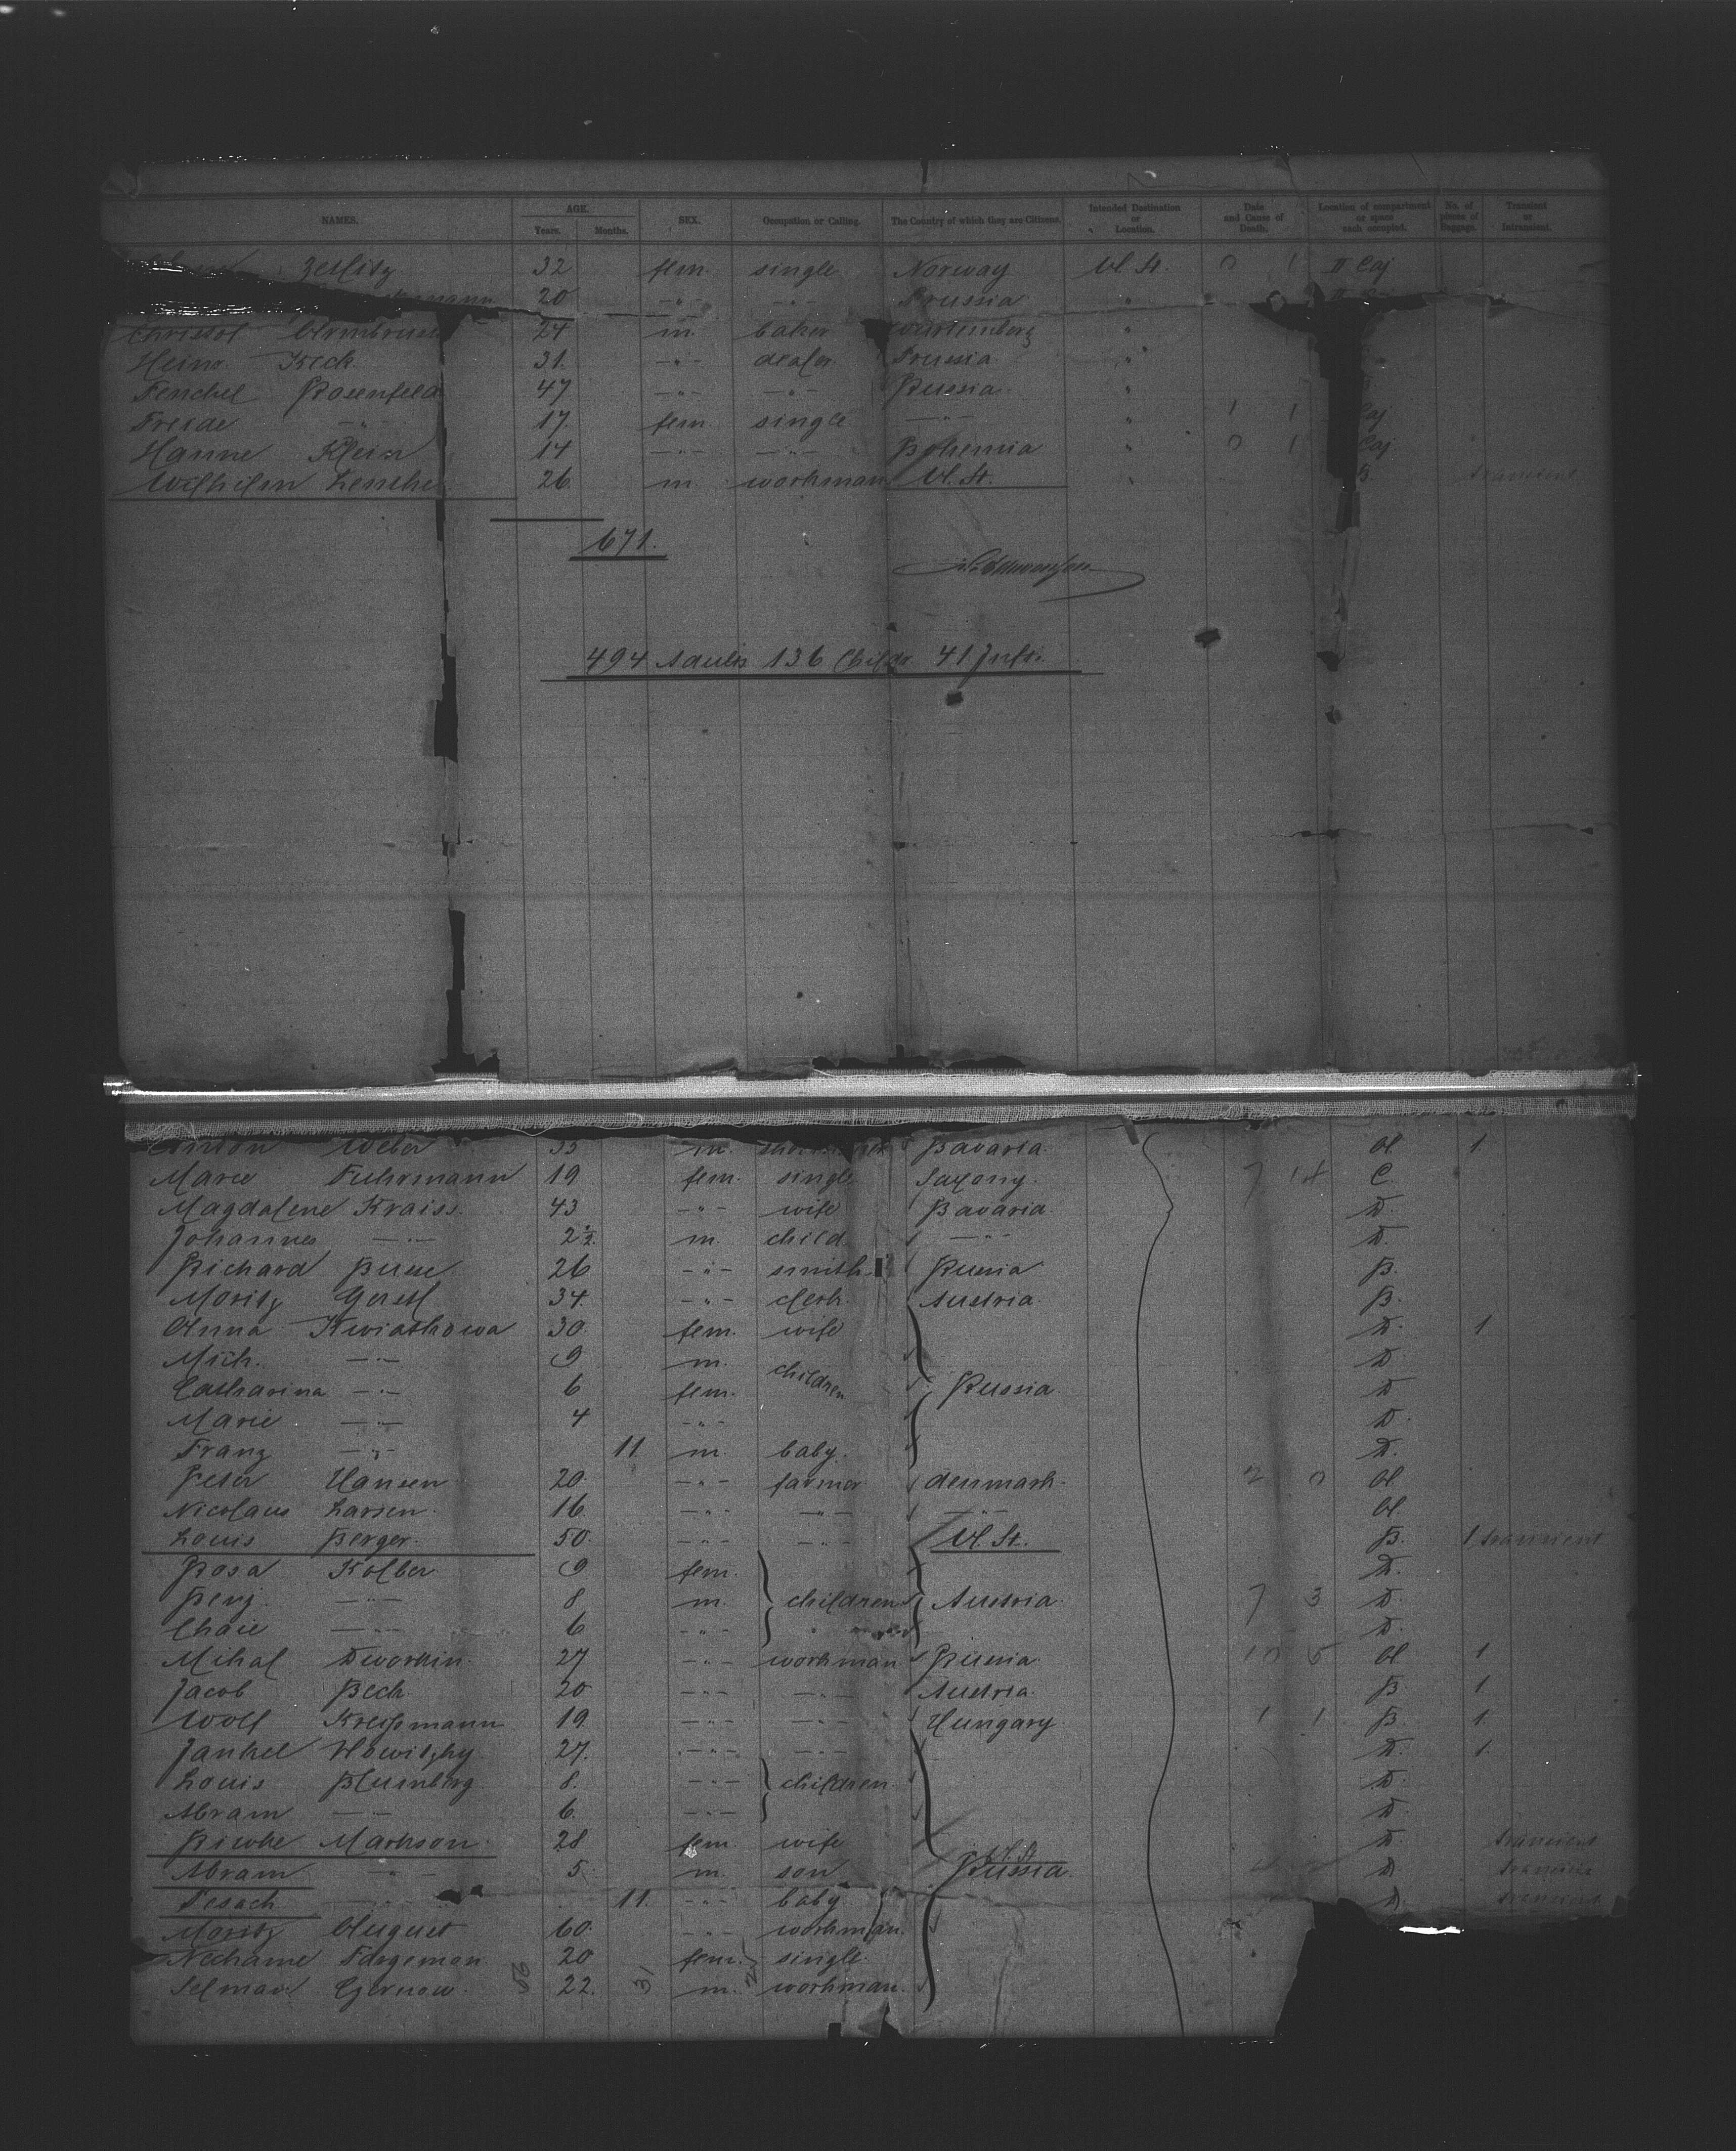 NAMES. AGE. Years. Months. SEX. Occupation or Calling. The Country of which they are Citizens. Intended Destination or Location. Date and Cause of Death. Location of compartment or space each occupied. No. of pieces of Baggage. Transient or Intransient.
Zetlitz 32 fem. single Norway U. St. 0 1 II Caj
20 —"— —"— Prussia "
Christof Armbrust 24 m. baker Württemberg "
Heinr. Keck 31. —"— dealer Prussia "
Fenchel Rosenfeld 47 —"— —"— Russia "
Freide —"— 17. fem. single —"— " 1 1 Caj
Hanne Klein 14 —"— —"— Bohemia " 0 1 Caj
Wilhelm 26 m. workman U. St. " B. transient
671.
494 Adults 136 Childr 41 Inft.
Anton Weber 33 m. Bavaria. U. 1.
Marie Fuhrmann 19 fem. single Saxony. 7 14 C.
Magdalene Kraiss. 43 —"— wife Bavaria. D.
Johannes —"— 2½. m. child. —"— D.
Richard Busse. 26 —"— smith. Russia B.
Moritz Gerstl 34. —"— clerk. Austria. B.
Anna Kwiatkowa 30. fem. wife D. 1
Mich. —"— 9 m. children D.
Catharina —"— 6 fem. Russia. D
Marie —"— 4 —"— D.
Franz —"— 11. m. baby. D.
Peter Hansen 20. —"— farmer denmark. 2 0 U.
Nicolaus Larsen. 16. —"— —"— —"— U.
Louis Berger. 50. —"— —"— U. St. B. 1. transient
Rosa Kolber 9 fem. D.
Benj. —"— 8 m. children Austria. 7 3 D.
Chaie —"— 6 —"— " D.
Mihal Dworkin. 27 —"— workman Russia. 10 5 U. 1.
Jacob Beck. 20 —"— —"— Austria. B. 1.
Wolf Kreissmann 19. —"— —"— Hungary. 1 1 B. 1.
Jankel 27. —"— —"— D. 1.
Louis Blumberg. 8. —"— children. D.
Abram —"— 6. —"— D.
Riwke Markson. 28 fem. wife U. St. D. transient
Abram —"— 5. m. son Russia. D. transient
Pesach —"— 11. —"— baby D. transient
Moritz August 60. —"— workman.
Nechame 20 fem. single.
Selman 22. m. workman.